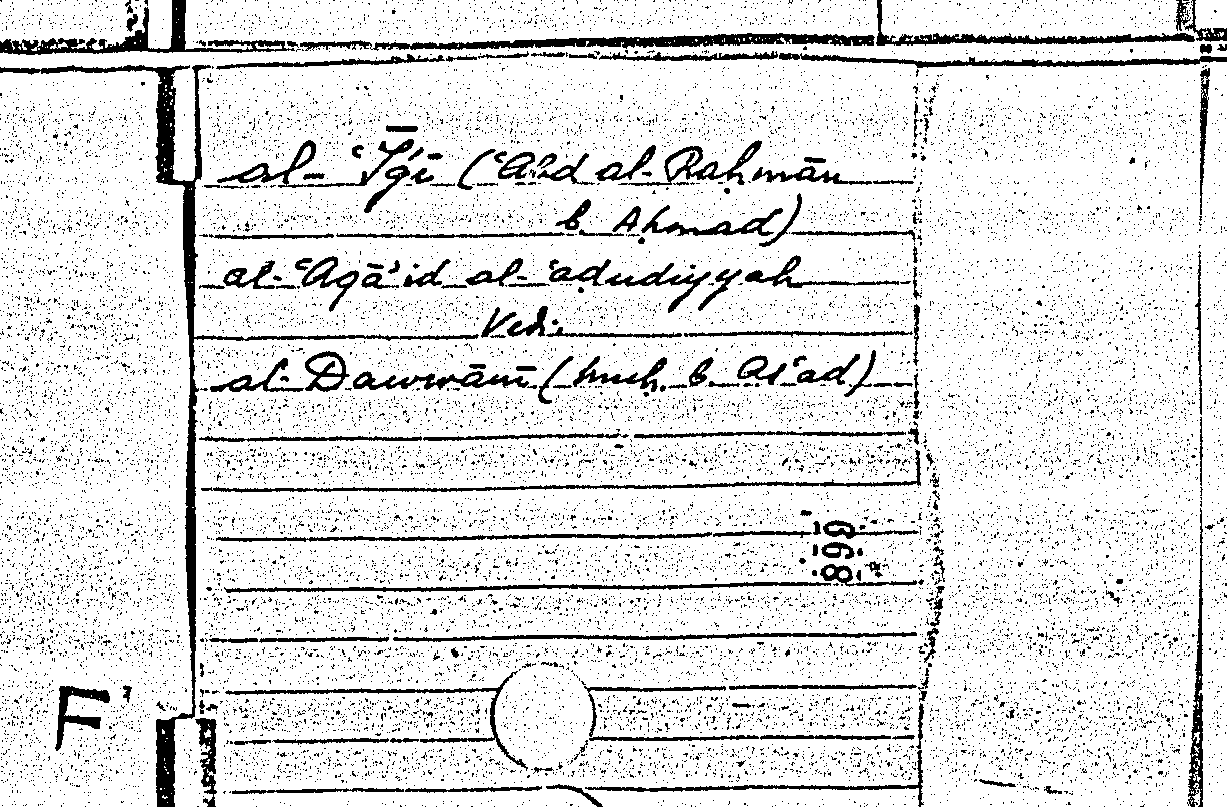 al-ʿĪǧī (ʿAbd al-Raḥmān
b. Aḥmad)
al-ʿAqāʾid al-ʿaḍudiyyah
Vedi:
al-Dawwānī (Muḥ. b. Asʿad)
893
F